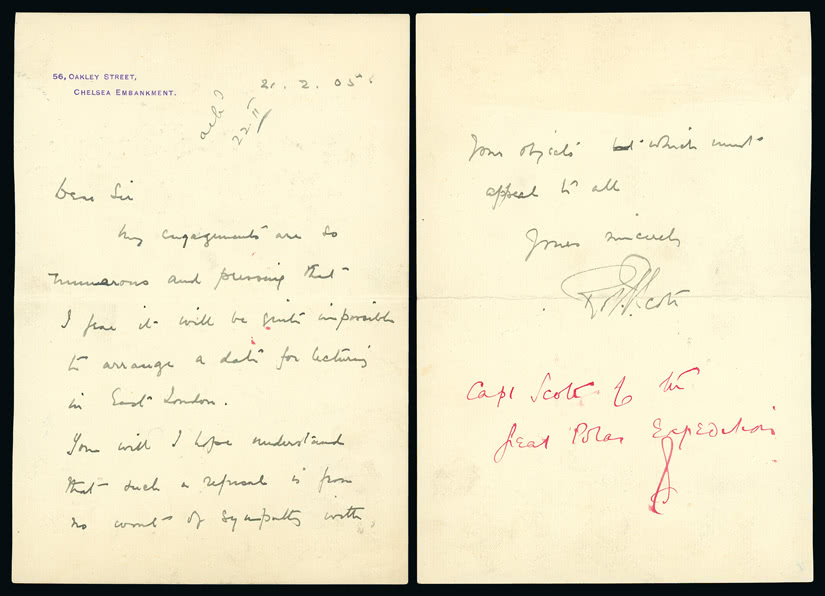 56, OAKLEY STREET,
CHELSEA EMBANKMENT.
21. 2. 05
22/II
Dear Sir
My engagements are so
numerous and pressing that
I fear it will be quite impossible
to arrange a date for lecturing
in East London.
You will I hope understand
that such a refusal is from
no want of sympathy with
Your objects which must
appeal to all
Yours sincerely
R. F. Scott
Capt Scott of the
Great Polar Expedition